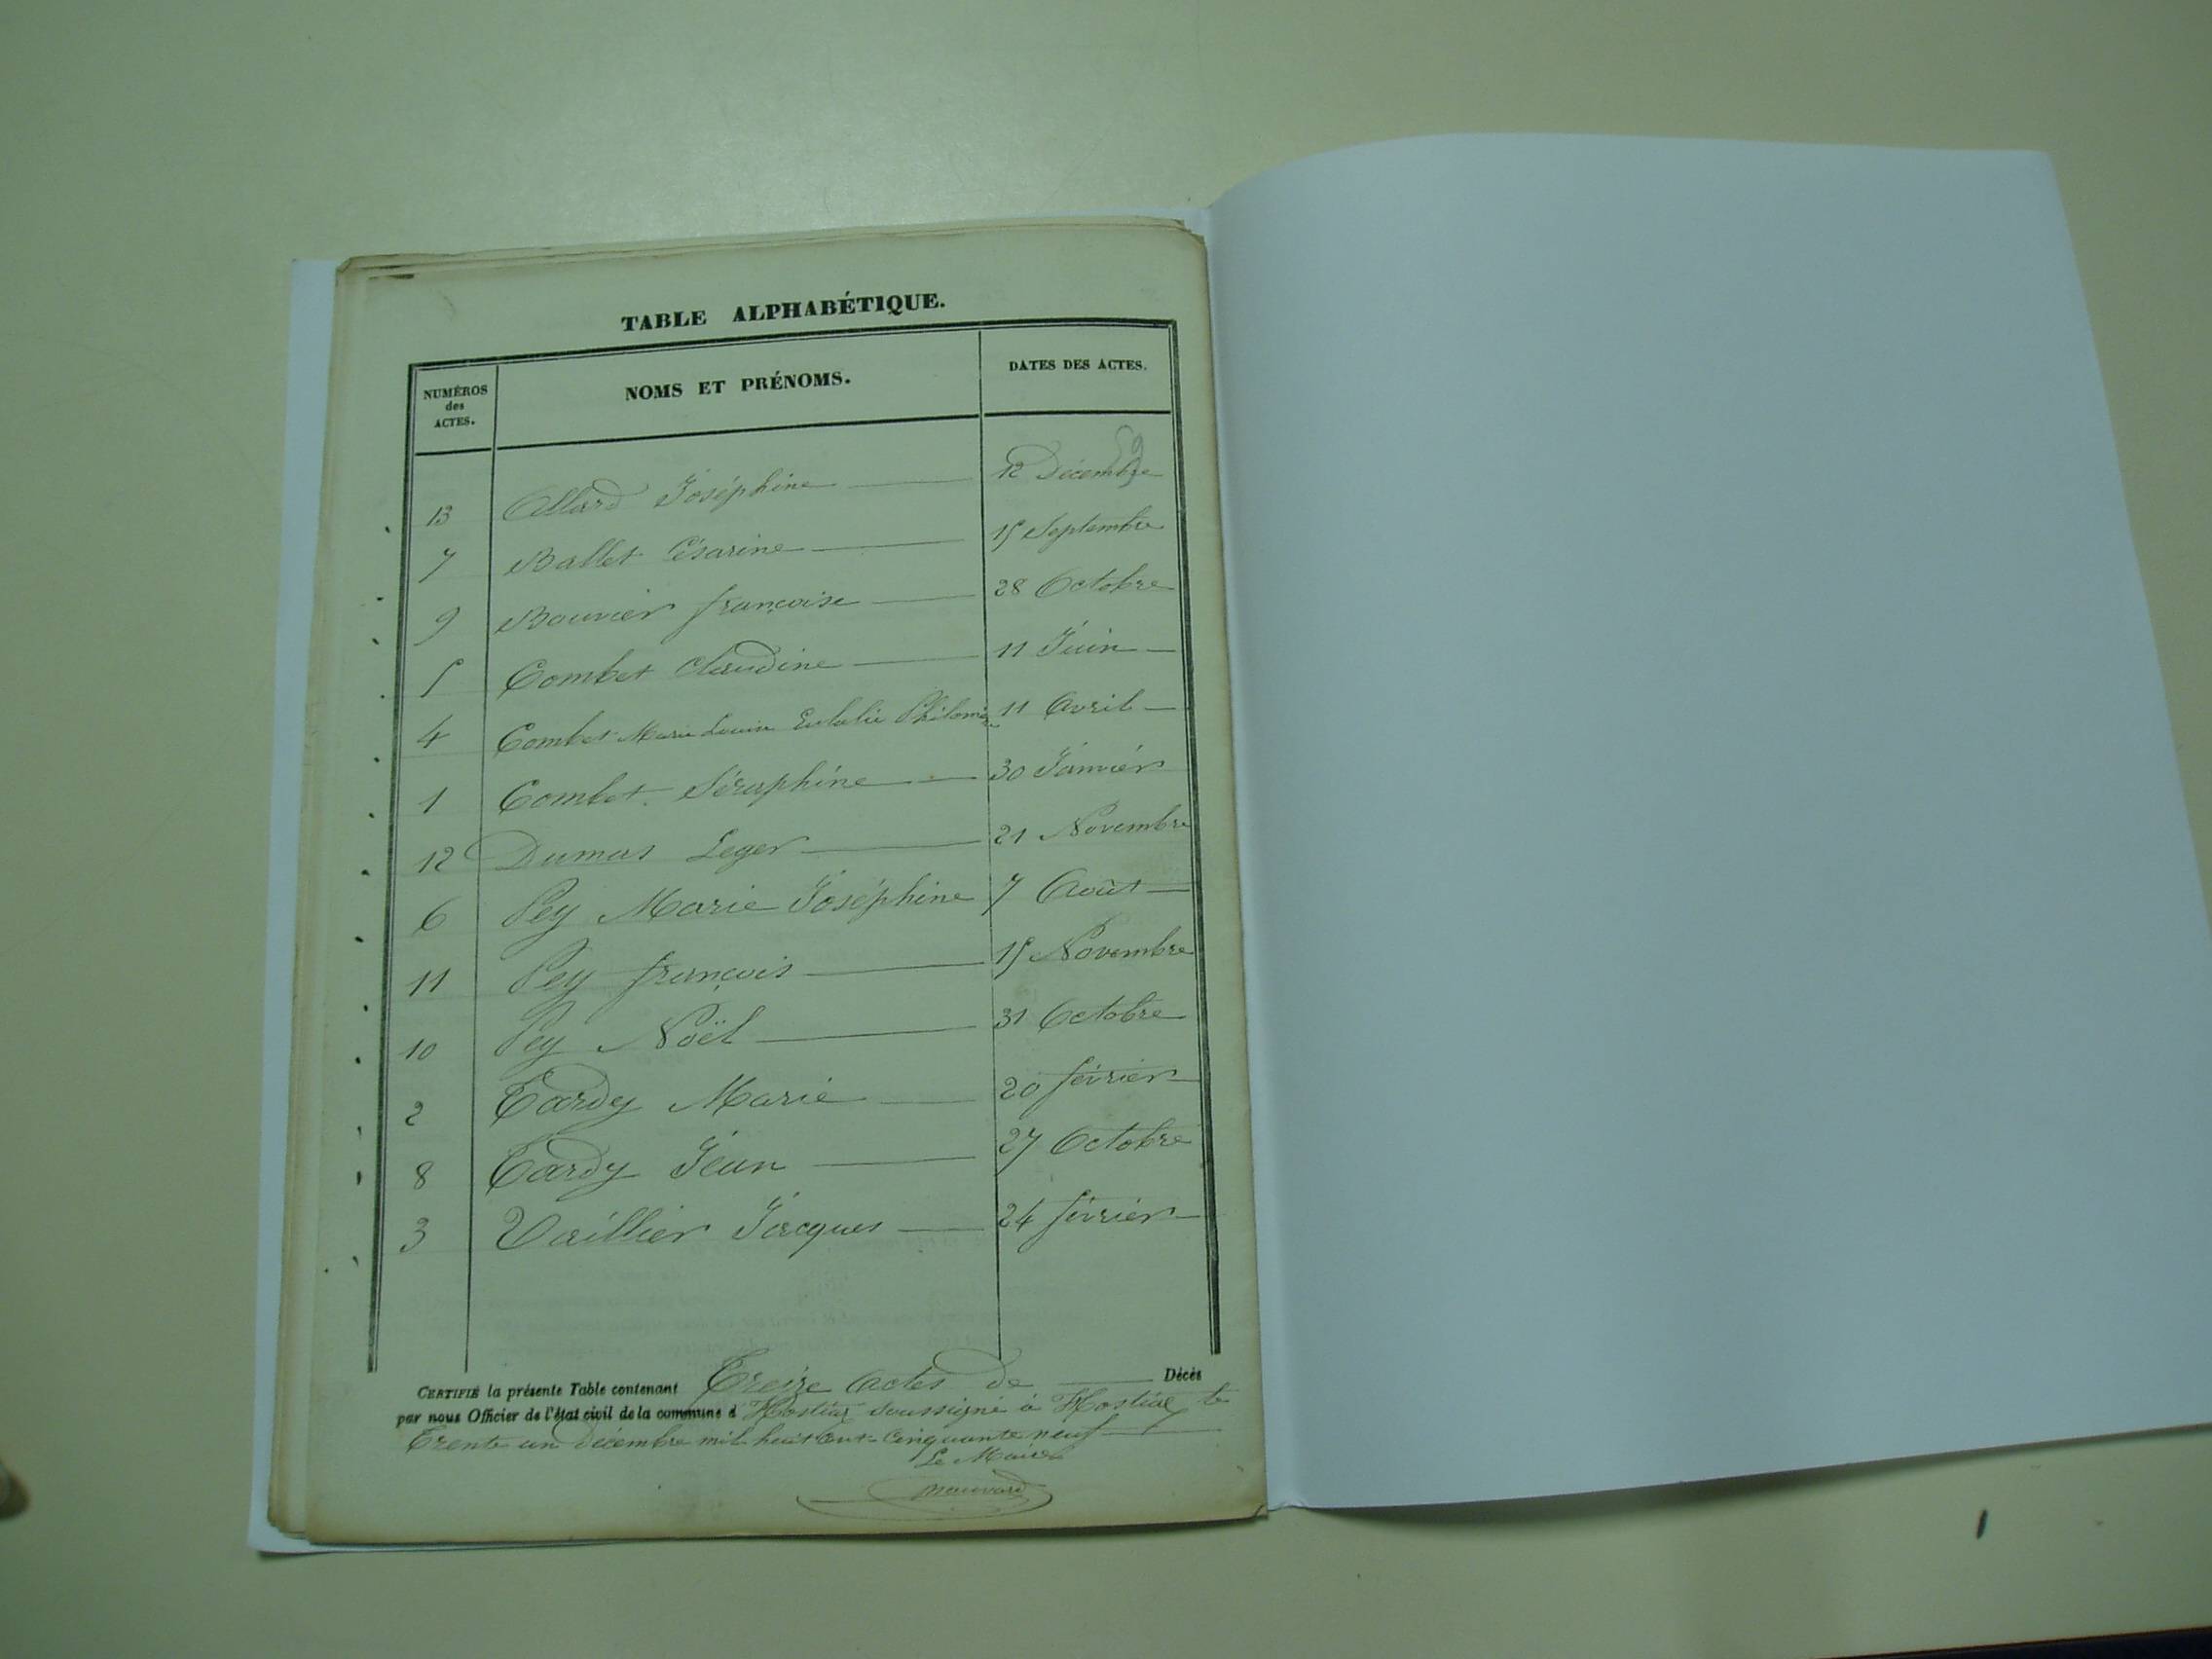 TABLE ALPHABÉTIQUE.
NUMÉROS des ACTES. NOMS ET PRÉNOMS. DATES DES ACTES.
59
13 Allard Joséphine 12 Décembre
7 Ballet Césarine 15 Septembre
9 Bouvier françoise 28 Octobre
5 Combet Claudine 11 Juin
4 Combet Marie Louise Eulalie Philomène 11 Avril
1 Combet Séraphine 30 Janvier
12 Dumas Leger 21 Novembre
6 Pey Marie Joséphine 7 Août
11 Pey françois 15 Novembre
10 Pey Noël 31 Octobre
2 Tardy Marie 20 février
8 Tardy Jean 27 Octobre
3 Vaillier Jacques 24 février
CERTIFIÉ la présente Table contenant Treize Actes de Décès
par nous Officier de l'état civil de la commune d'Hostiaz soussigné à Hostiaz le
Trente un Décembre mil huit cent cinquante neuf
Le Maire